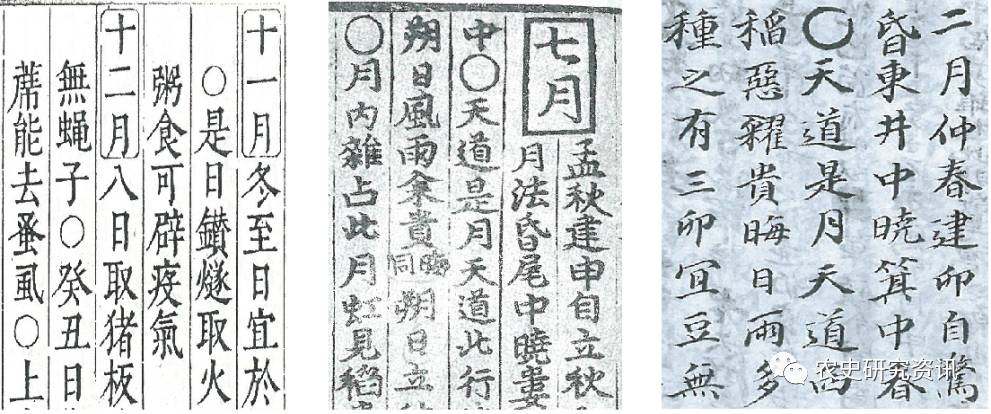 二月仲春建卯自驚
昏東井中曉箕中春
〇天道是月天道西
稲惡糴貴晦日雨多
種之有三卯宜豆無
七月
孟秋建申自立秋
月法昏尾中曉婁
中〇天道是月天道此行
朔日風雨籴貴晦同朔日立
〇月内雜占此月虹見稻
十一月冬至日宜於
〇是日鑚燧取火
粥食可辟疫氣
十二月八日取猪板
無蝇子〇癸丑日
蓆能去蚤虱〇上
农史研究资讯